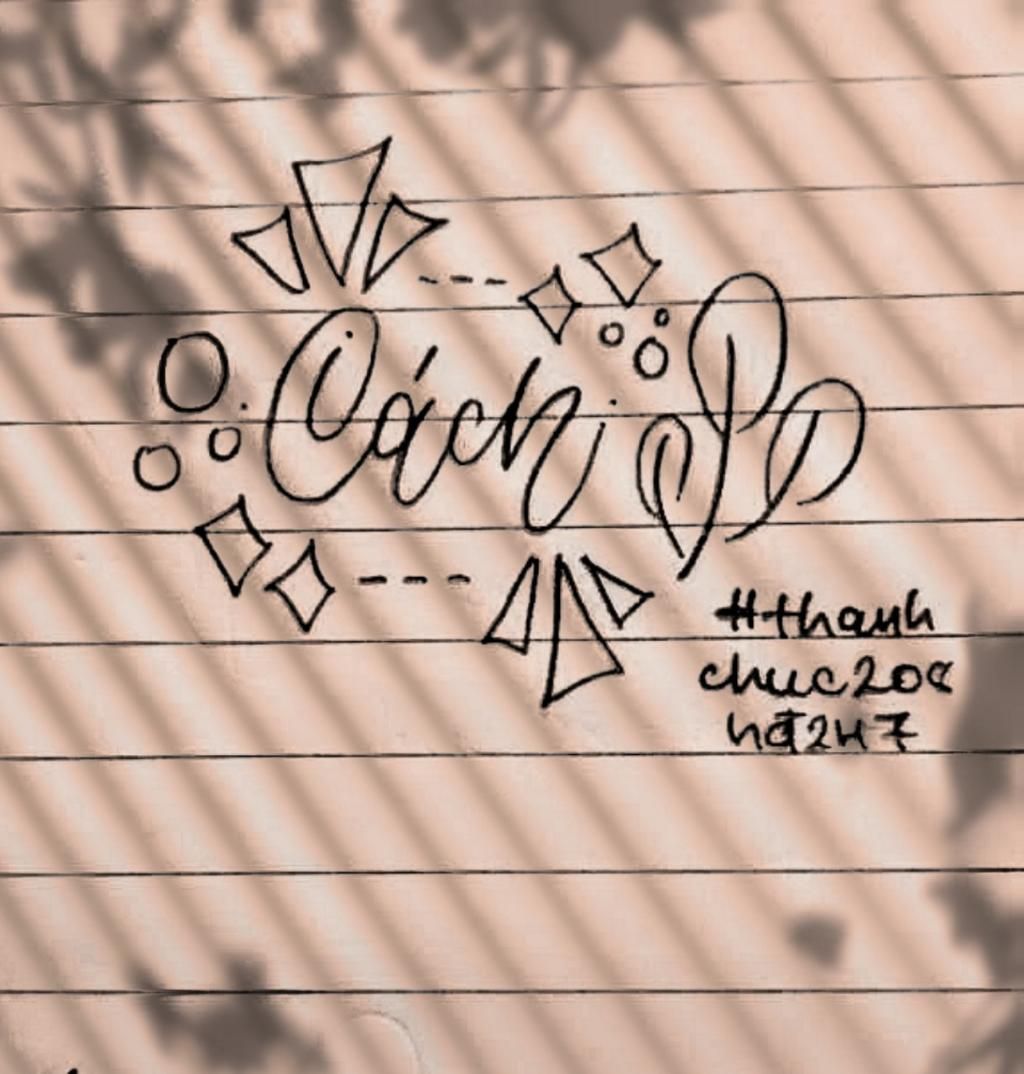 Cách
#thanh
chuc208
hđ247